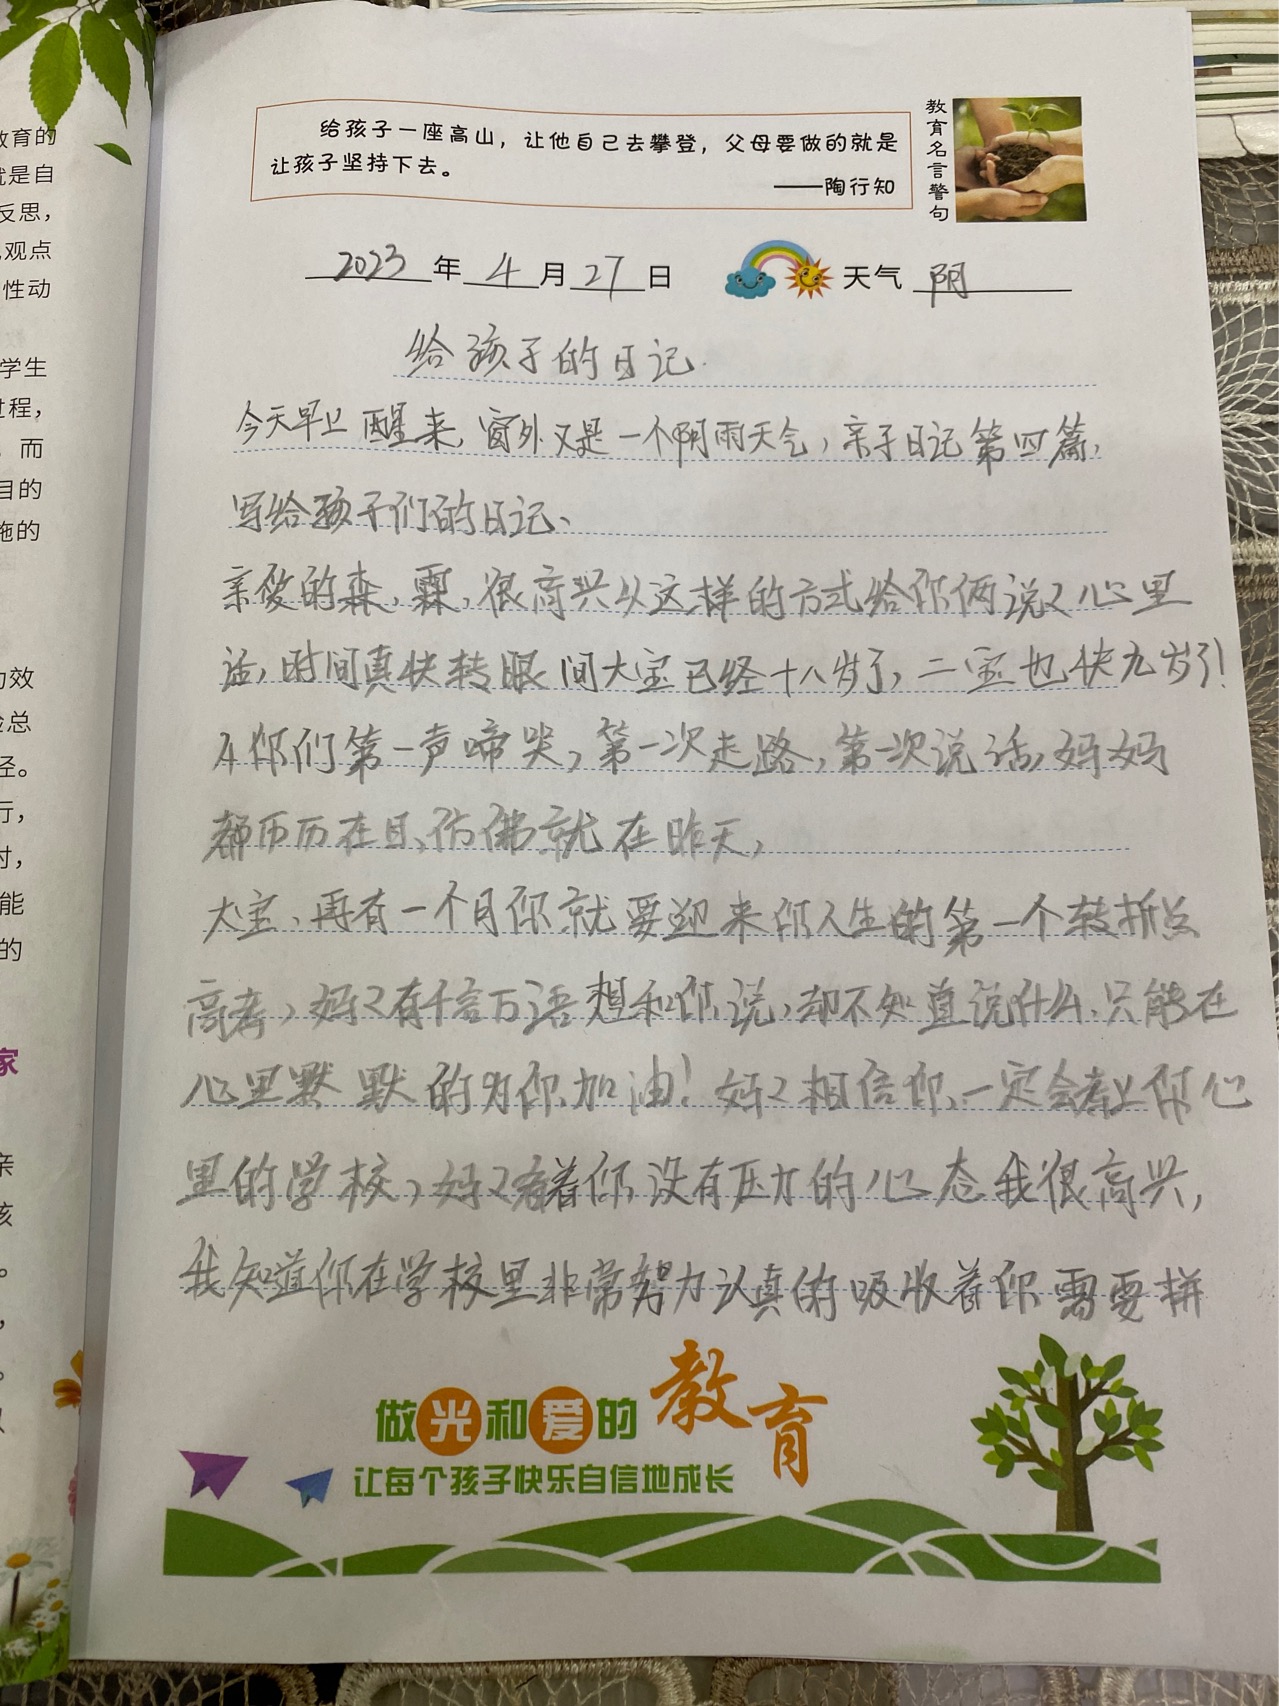 给孩子一座高山，让他自己去攀登，父母要做的就是
让孩子坚持下去。
——陶行知
教育名言警句
2023年4月27日
天气 阴
给孩子的日记.
今天早上醒来，窗外又是一个阴雨天气，亲子日记第四篇，
写给孩子们的日记、
亲爱的森，霖，很高兴从这样的方式给你俩说々心里
话，时间真快转眼间大宝已经十八岁了，二宝也快九岁了！
从你们第一声啼哭，第一次走路，第一次说话，妈妈
都历历在目、仿佛就在昨天，
大宝、再有一个月你就要迎来你人生的第一个转折点
高考，妈々有千言万语想和你说，却不知道说什么、只能在
心里默默的为你加油！妈々相信你、一定会考上你心
里的学校，妈々看着你没有压力的心态我很高兴，
我知道你在学校里非常努力认真的吸收着你需要拼
做光和爱的教育
让每个孩子快乐自信地成长
教育的
就是自
反思，
观点
性动
学生
过程，
而
目的
施的
功效
验总
径。
行，
时，
能
的
家
亲
孩